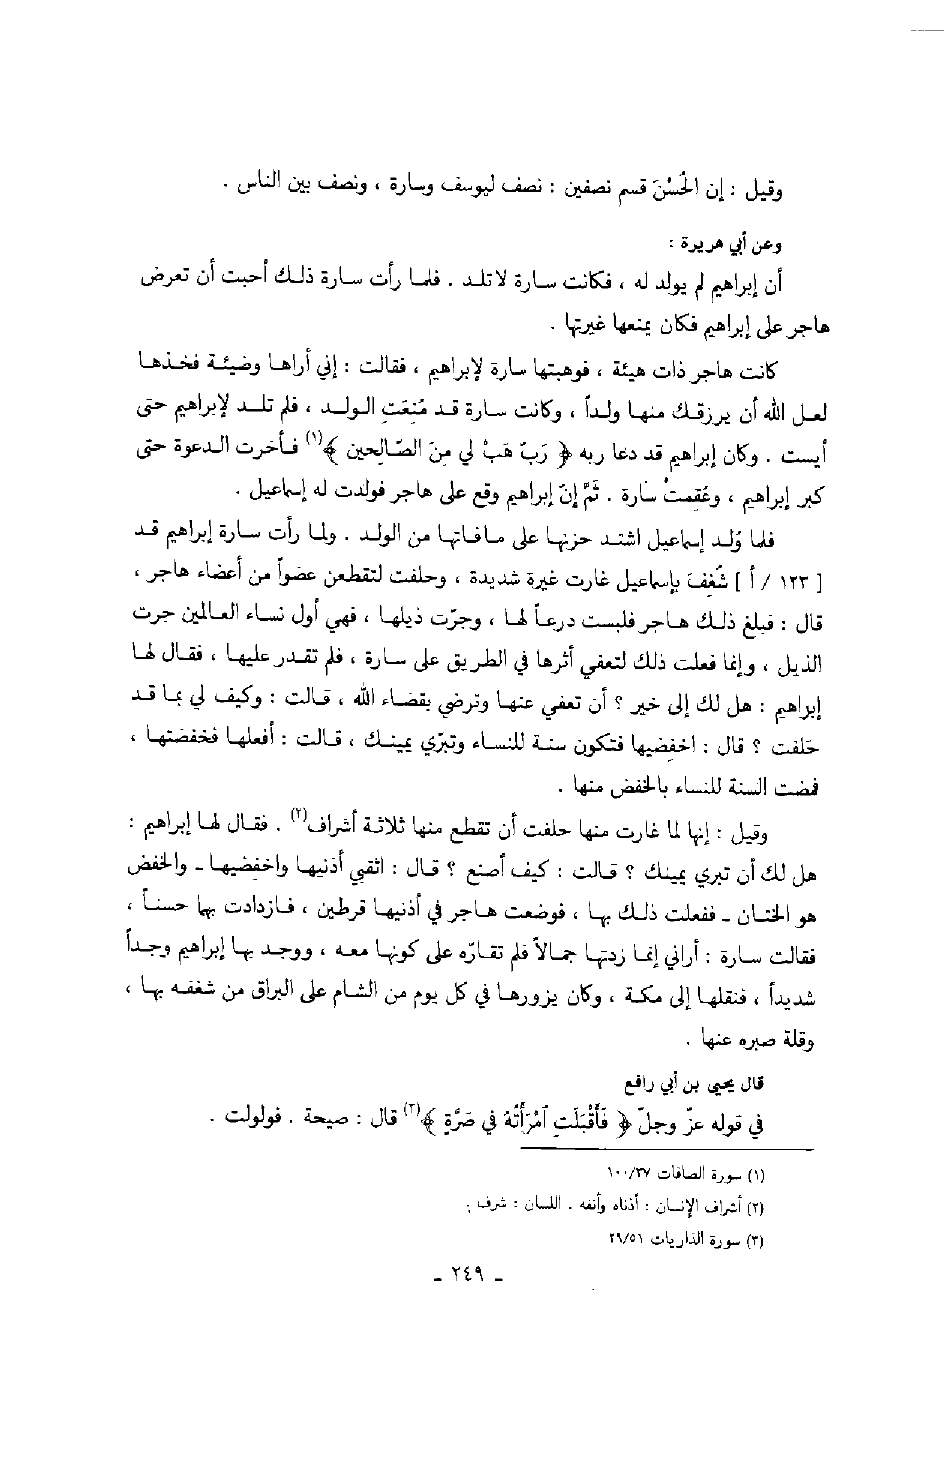 وقيل : إن الحُسْنَ قسم نصفين : نصف ليوسف وسارة ، ونصف بين الناس .
وعن أبي هريرة :
أن إبراهيم لم يولد له ، فكانت سارة لا تلد . فلما رأت سارة ذلك أحبت أن تعرض
هاجر على إبراهيم فكان يمنعها غيرتها .
كانت هاجر ذات هيئة ، فوهبتها سارة لإبراهيم ، فقالت : إني أراها وضيئة فخذها
لعل الله أن يرزقك منها ولداً ، وكانت سارة قد مُنعَتِ الولد ، فلم تلد لإبراهيم حتى
أيست . وكان إبراهيم قد دعا ربه ﴿ رَبِّ هَبْ لي مِنَ الصَّالِحين ﴾(١) فأخرت الدعوة حتى
كبر إبراهيم ، وعُقِمتْ سَارة . ثُمَّ إنّ إبراهيم وقع على هاجر فولدت له إسماعيل .
فلما وُلد إسماعيل اشتد حزنها على ما فاتها من الولد . ولما رأت سارة إبراهيم قد
[ ١٢٣ / أ ] شُغِفَ بإسماعيل غارت غيرة شديدة ، وحلفت لتقطعن عضواً من أعضاء هاجر ،
قال : فبلغ ذلك هاجر فلبست درعاً لها ، وجرّت ذيلها ، فهي أول نساء العالمين جرت
الذيل ، وإنما فعلت ذلك لتعفي أثرها في الطريق على سارة ، فلم تقدر عليها ، فقال لها
إبراهيم : هل لك إلى خير ؟ أن تعفي عنها وترضي بقضاء الله ، قالت : وكيف لي بما قد
حَلفت ؟ قال : اخفِضيها فتكون سنة للنساء وتبرّي يمينك ، قالت : أفعلها فخفضتها ،
فمضت السنة للنساء بالخفض منها .
وقيل : إنها لما غارت منها حلفت أن تقطع منها ثلاثة أشراف(٢) . فقال لها إبراهيم :
هل لك أن تبري يمينك ؟ قالت : كيف أصنع ؟ قال : اثقبي أذنيها واخفضيها ـ والخفض
هو الختان ـ ففعلت ذلك بها ، فوضعت هاجر في أذنيها قرطين ، فازدادت بها حسناً ،
فقالت سارة : أراني إنما زدتها جمالاً فلم تقارّه على كونها معه ، ووجد بها إبراهيم وجداً
شديداً ، فنقلها إلى مكة ، وكان يزورها في كل يوم من الشام على البراق من شغفه بها ،
وقلة صبره عنها .
قال يحيى بن أبي رافع
في قوله عزّ وجلّ ﴿ فَأَقْبَلَتِ آمْرَأَتُهُ فِي صَرَّةٍ ﴾(٣) قال : صيحة . فولولت .
(١) سورة الصافات ١٠٠/٣٧
(٢) أشراف الإنسان : أذناه وأنفه . اللسان : شرف .
(٣) سورة الذاريات ٢٩/٥١
ـ ٢٤٩ ـ